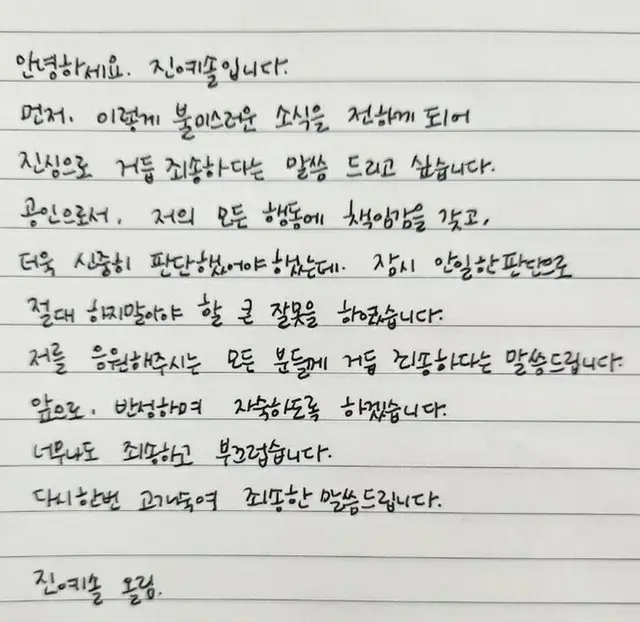 안녕하세요. 진예솔입니다.
먼저, 이렇게 불미스러운 소식을 전하게 되어
진심으로 거듭 죄송하다는 말씀 드리고 싶습니다.
공인으로서, 저의 모든 행동에 책임감을 갖고,
더욱 신중히 판단했어야했는데. 잠시 안일한판단으로
절대 하지말아야 할 큰 잘못을 하였습니다.
저를 응원해주시는 모든 분들께 거듭 죄송하다는 말씀드립니다.
앞으로, 반성하며 자숙하도록 하겠습니다.
너무나도 죄송하고 부끄럽습니다.
다시한번 고개숙여 죄송한 말씀드립니다.
진예솔 올림.